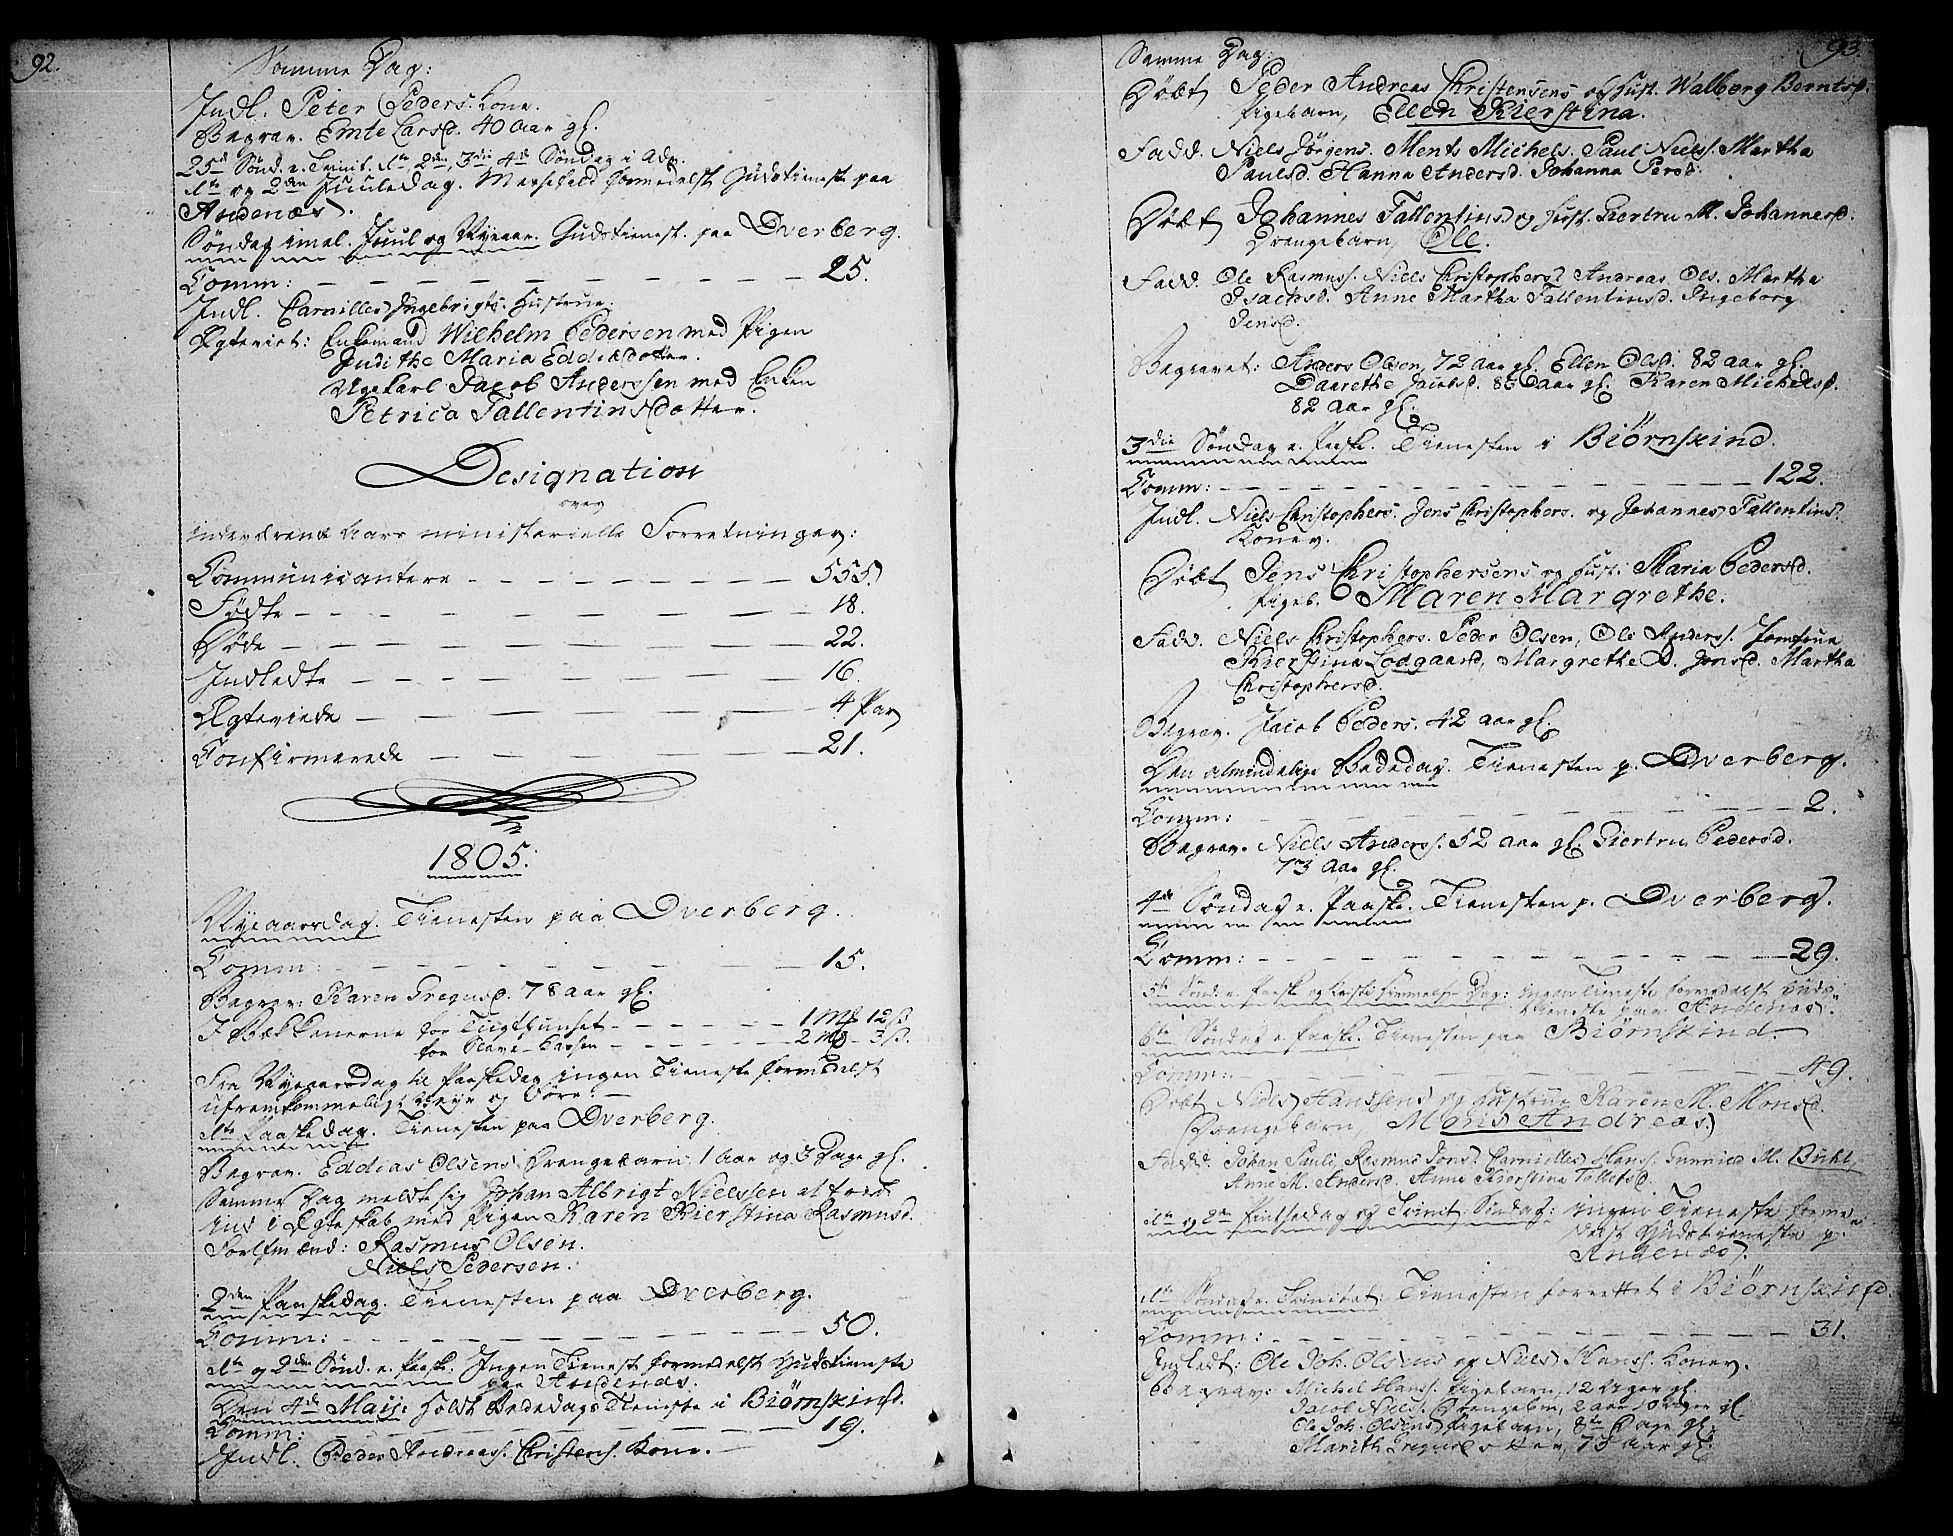 92.
Samme Dag:
Indl. Peter Peders. Kone.
Begrav. Emte Larsd. 40 Aar gl.
25de Sønd. e. Trinit. 1te 2den, 3die 4de Søndag i Adv.
1te og 2den Juuledag. Messefald formedelst Gudstieneste paa
Andenæs.
Søndag imel. Juul og Nyeaar. Gudstienest. paa Dverberg.
Comm: 25.
Indl. Carnilles Ingebrigts. Hustrue.
Ægteviet: Enkemand Wilhelm Pedersen med Pigen
Judithe Maria Eddiædotter.
Ugekarl Jacob Anderssen med Enken
Petrica Tallentinsdotter.
Designation
over
indeværende Aars ministerielle Forretninger:
Communicantere 555.
Fødte 18.
Døde 22.
Indledte 16.
Ægteviede 4 Par
Confirmerede 21.
1805.
Nyeaarsdag. Tienesten paa Dverberg.
Comm: 15.
Begrav: Karen Gregusd. 78 Aar gl.
I Bækkenerne for Tugthuuset 1 Mk 12 ß
for Slave-Cassen 2 Mk - 3 ß.
Fra Nyeaarsdag til Paaskedag ingen Tieneste formedelst
ufremkommeligt Veyr og Føre.
1te Paaskedag. Tienesten paa Dverberg.
Begrav. Eddias Olsens Drengebarn 1 Aar og 3 Dage gl.
Samme Dag meldte sig Johan Albrigt Nielssen at træde
ind i Ægteskab med Pigen Karen Kierstina Rasmusd.
Forlfmænd: Rasmus Olsen.
Niels Pedersen.
2den Paaskedag. Tienesten paa Dverberg.
Comm: 50.
1te og 2den Sønd. e. Paask. Ingen Tienest formedelst Gudstieneste
paa Andenæs.
Den 4de Maij. holdt Bededags Tieneste i Biørnskind.
Comm: 19.
Indl. Peder Andreas Christens. Kone.
93.
Samme Dag
Døbt Peder Andreas Christensens og Hust. Walborg Berntsd.
Pigebarn, Ellen Kierstina.
Fadd. Niels Jörgens. Ments Michels. Paul Niels. Martha
Paulsd. Hanna Andersd. Johanna Persd.
Døbt Johannes Tallentins og Hust. Giertru M. Johannesd.
Drengebarn, Ole.
Fadd. Ole Rasmuss. Niels Christophers. Andreas Ols. Martha
Isachsd. Anne Martha Tallentinsd. Ingeborg
Jensd.
Begravet: Anders Olsen, 72 Aar gl. Ellen Olsd. 82 Aar gl.
Daarethe Jacobsd. 85 Aar gl. Karen Michelsd.
82 Aar gl.
3die Søndag e. Paaske. Tienesten i Biørnskind.
Comm: 122.
Indl. Niels Christophers. Jens Christophers. og Johannes Tallentins.
Koner.
Døbt Jens Christophersens og Hust. Maria Pedersd.
Pigeb. Maren Margrethe.
Fadd. Niels Christophers. Peder Olsen, Ole Anderss. Jomfrue
Kierstina Lodgaard, Margrethe D. Jensd. Martha
Christophersd.
Begrav. Jacob Peders. 42 Aar gl.
Den almindelige Bededag. Tienesten p. Dverberg.
Comm: 2.
Begrav. Niels Anderss. 52 Aar gl. Giertru Pedersd.
73 Aar gl.
4de Søndag e. Paaske. Tienesten p. Dverberg.
Comm: 29.
5te Sønd. e. Paaske og Christi Himmelf. Dag: ingen Tieneste formedelst Guds-
tieneste paa Andenæs.
6te Søndag e. Paaske. Tienesten paa Biørnskind.
Comm: 49.
Døbt Niels Hanssens og Hustrue Karen M. Monsd.
Drengebarn, Mons Andreas.
Fadd. Johan Pauli Rasmus Jons. Carnilles Hanss. Gunnild M. Buhl
Anne M. Andersd. Anne Kierstina Tollefsd.
1te og 2de Pintsedag og Trinit. Søndag: ingen Tieneste forme-
delst Gudstieneste p.
Andenæs.
1te Søndag e. Trinitat. Tienesten forrettet i Biørnskind.
Comm: 31.
Indledt: Ole Joh. Olsens og Niels Hanss. Koner.
Begrav: Michel Hanss. Pigebarn, 12 Uger gl.
Jacob Niels. Drengebrn, 2 Aar 10 Uger gl.
Ole Joh. Olsens Pigebarn, 8te Dage gl.
Marith Gregusdotter, 73 Aar gl.